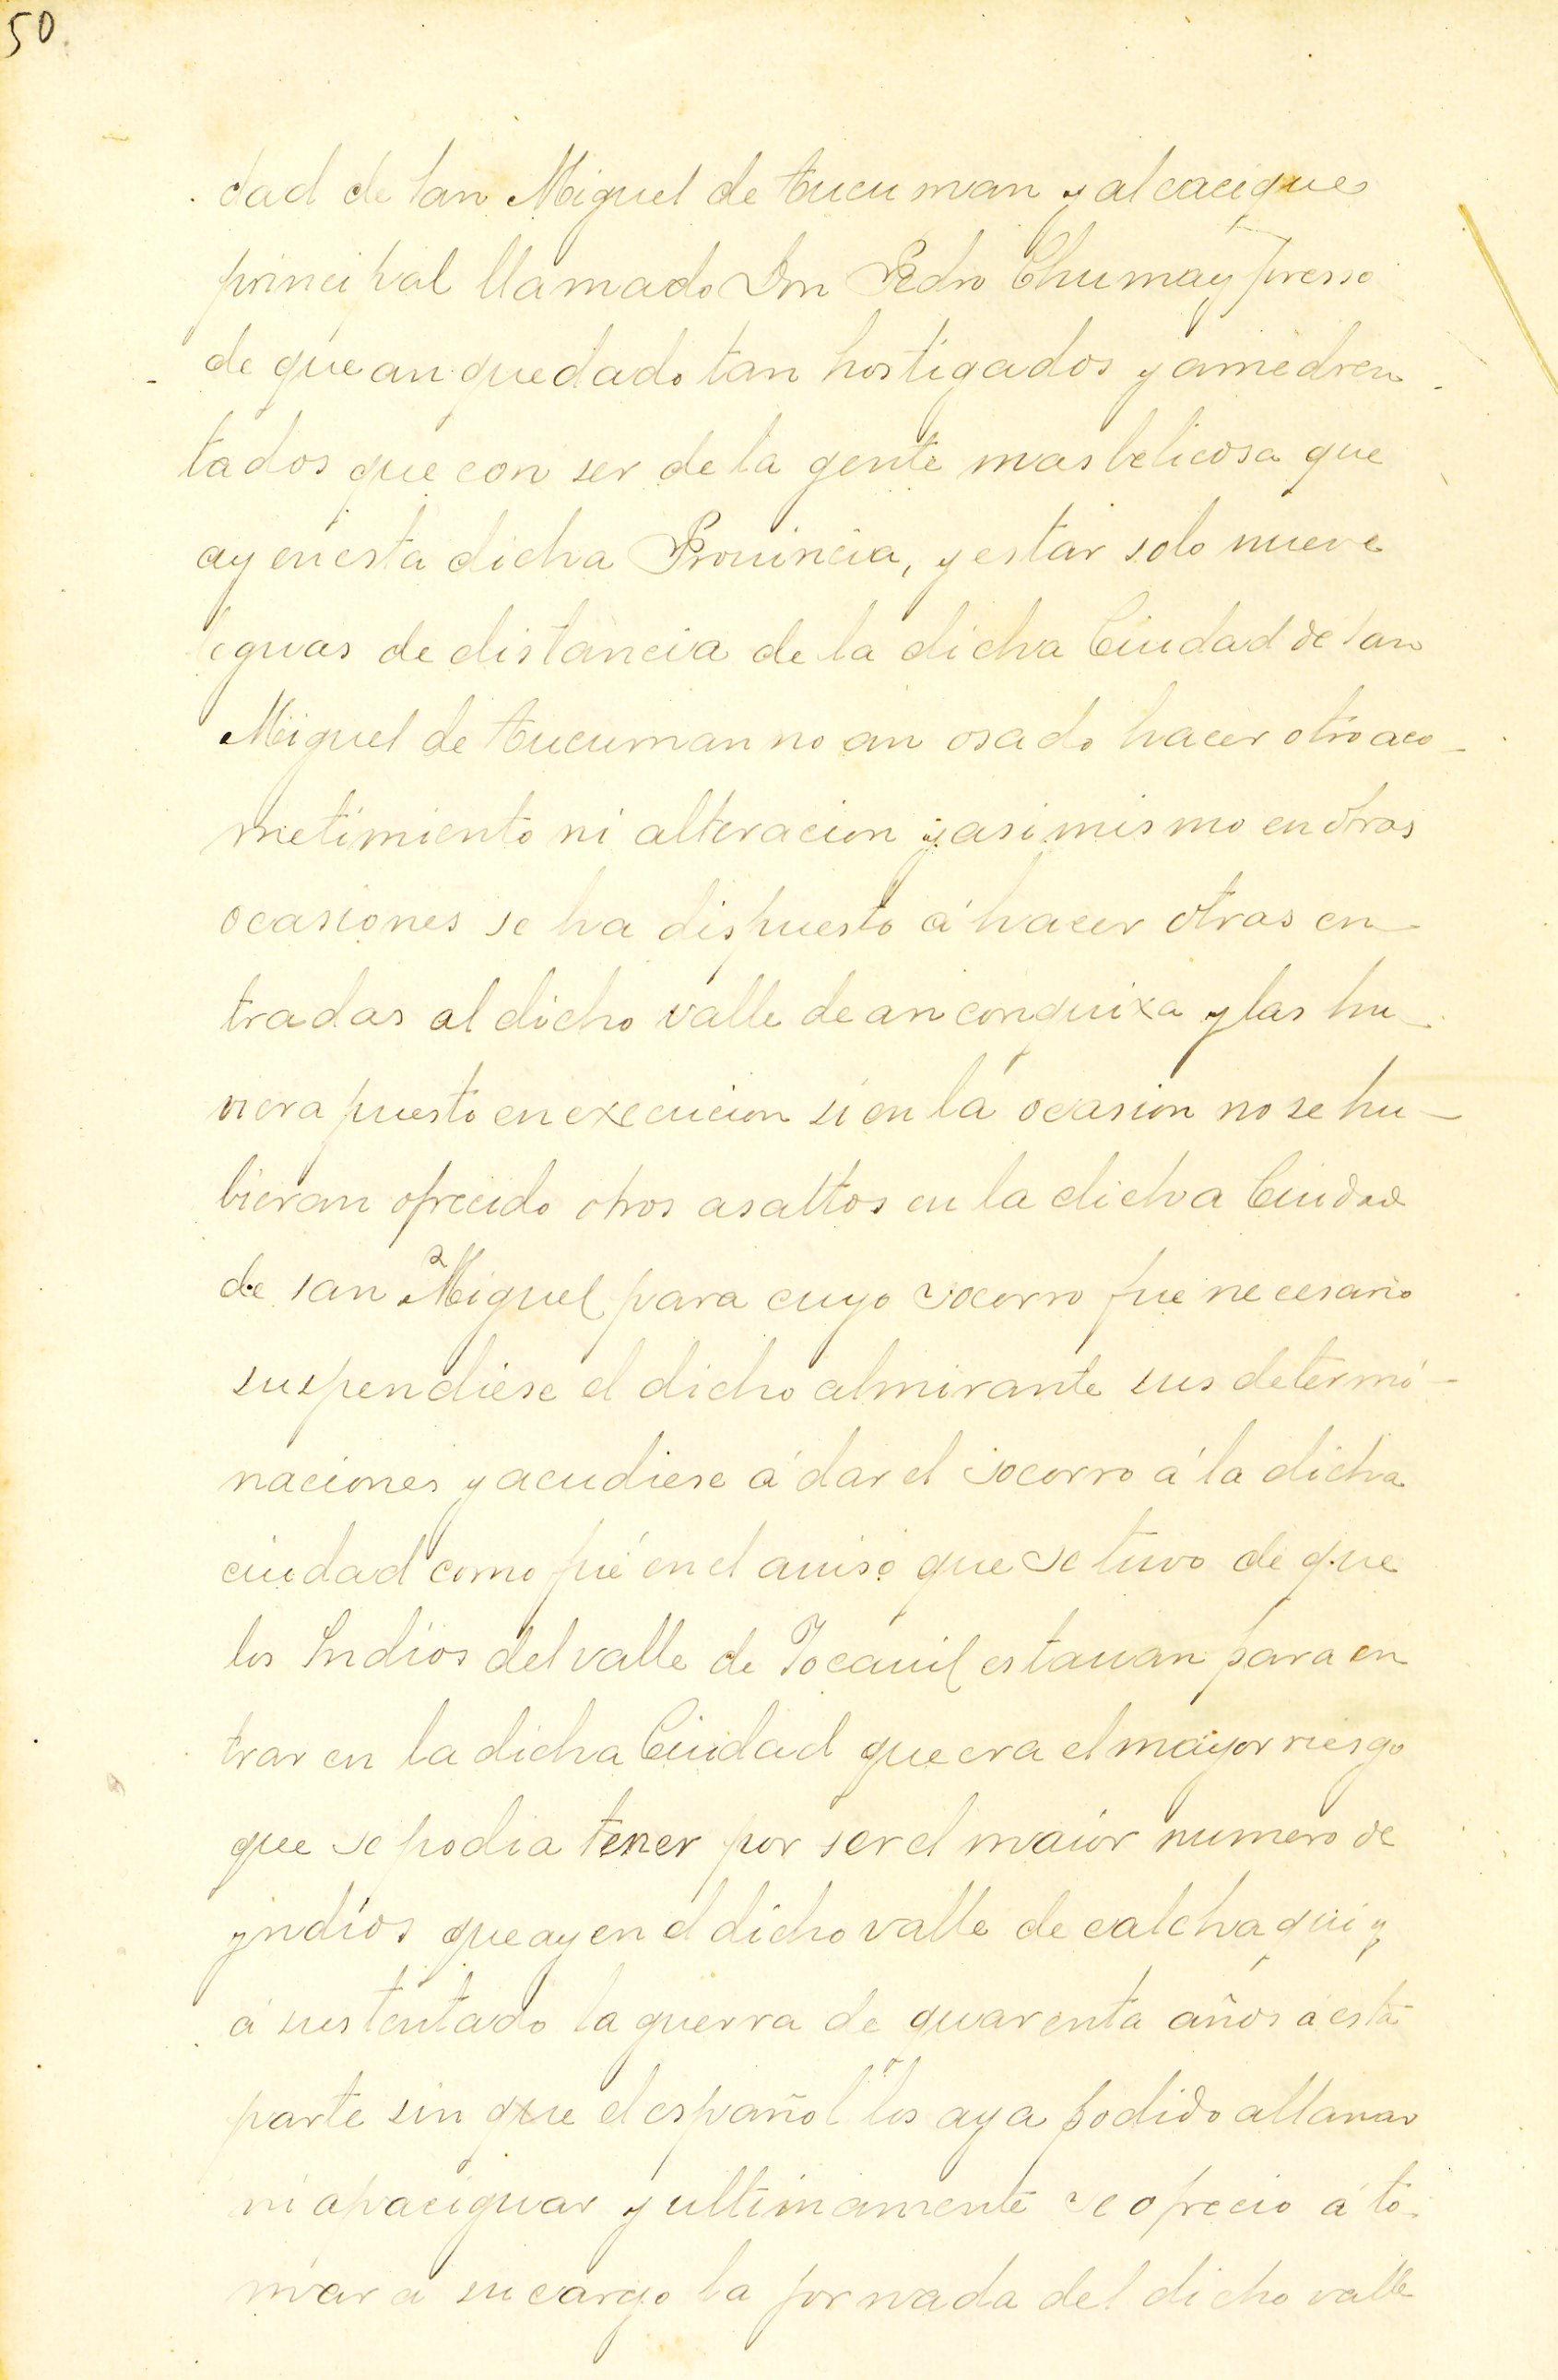 50.
dad de san Miguel de tucuman y al cacique
principal llamado Don Pedro Chumay presso
de que an quedado tan hostigados y amedren
tados que con ser de la gente mas belicosa que
ay en esta dicha Prouincia, y estar solo nueve
leguas de distancia de la dicha Ciudad de san
Miguel de tucuman no an osado hacer otro aco-
metimiento ni alteracion y asi mismo en otras
ocasiones se ha dispuesto á hacer otras en-
tradas al dicho valle de anconquixa y las hu-
viera puesto en execucion si en la ocasion no se hu-
bieran ofrecido otros asaltos en la dicha Ciudad
de san Miguel para cuyo socorro fue necesario
suspendiese el dicho almirante sus determi-
naciones y acudiese á dar el socorro á la dicha
ciudad como fué en el auiso que se tuvo de que
los Indios del valle de Yocauil estauan para en
trar en la dicha Ciudad que era el mayor riesgo
que se podia tener por ser el maior numero de
yndios que ay en el dicho valle de calchaqui y
á sustentado la guerra de quarenta años á esta
parte sin que el español los aya podido allanar
ni apaciguar y ultimamente se ofrecio á to-
mar á su cargo la jornada del dicho valle